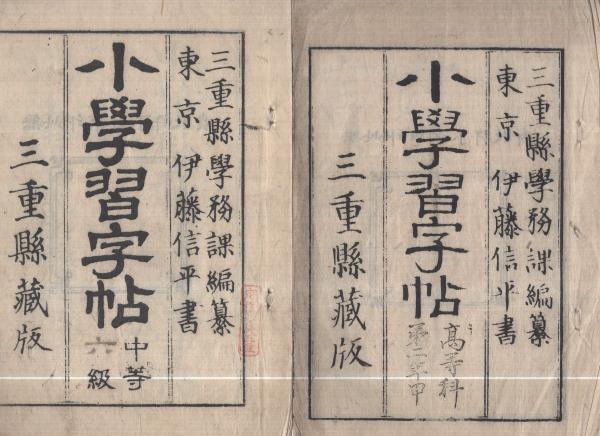 三重縣學務課編纂
東京 伊藤信平書
小學習字帖
高等科
第二年甲
三重縣藏版
三重縣學務課編纂
東京 伊藤信平書
小學習字帖
中等
六級
三重縣藏版